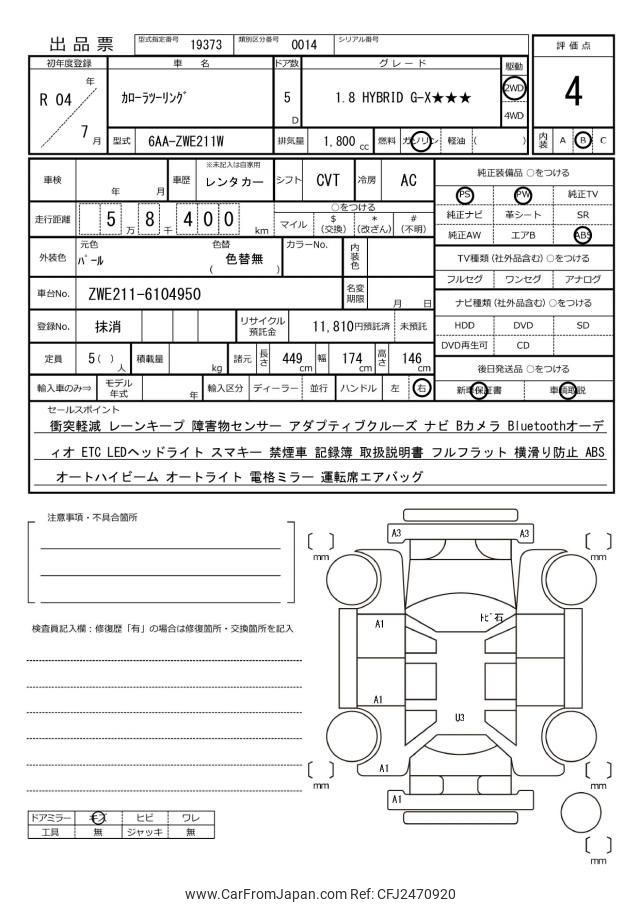 出品票
型式指定番号 19373 類別区分番号 0014 シリアル番号
評価点
4
初年度登録 車名 ドア数 グレード 駆動
R 04 年 7 月
カローラツーリング
5 D
1.8 HYBRID G-X★★★
2WD
4WD
型式 6AA-ZWE211W 排気量 1,800 cc 燃料 ガソリン 軽油 ( )
内装 A B C
車検 年 月 車歴 ※未記入は自家用 レンタカー シフト CVT 冷房 AC
走行距離 5 万 8 千 4 0 0 km
○をつける
マイル $(交換) *(改ざん) #(不明)
外装色 元色 パール 色替 ( 色替無 ) カラーNo. 内装色
車台No. ZWE211-6104950 名変期限 月 日
登録No. 抹消 リサイクル預託金 11,810円預託済 未預託
定員 5( )人 積載量 kg 諸元 長さ 449cm 幅 174cm 高さ 146cm
輸入車のみ⇒ モデル年式 年 輸入区分 ディーラー 並行 ハンドル 左 右
純正装備品 ○をつける
PS PW 純正TV
純正ナビ 革シート SR
純正AW エアB ABS
TV種類(社外品含む)○をつける
フルセグ ワンセグ アナログ
ナビ種類(社外品含む)○をつける
HDD DVD SD
DVD再生可 CD
後日発送品 ○をつける
新車保証書 車輌取説
セールスポイント
衝突軽減 レーンキープ 障害物センサー アダプティブクルーズ ナビ Bカメラ Bluetoothオーデ
ィオ ETC LEDヘッドライト スマキー 禁煙車 記録簿 取扱説明書 フルフラット 横滑り防止 ABS
オートハイビーム オートライト 電格ミラー 運転席エアバッグ
注意事項・不具合箇所
検査員記入欄：修復歴「有」の場合は修復箇所・交換箇所を記入
A3 A3
mm mm
A1 トビ石
A1
U3
A1
mm mm
A1
mm
ドアミラー キズ ヒビ ワレ
工具 無 ジャッキ 無
www.CarFromJapan.com Ref: CFJ2470920